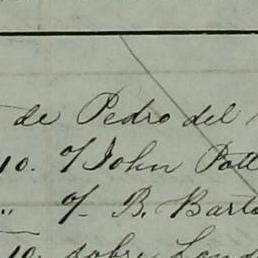 de Pedro del
10. c/ John Pott
" c/ B. Barto
10. sobre Lond